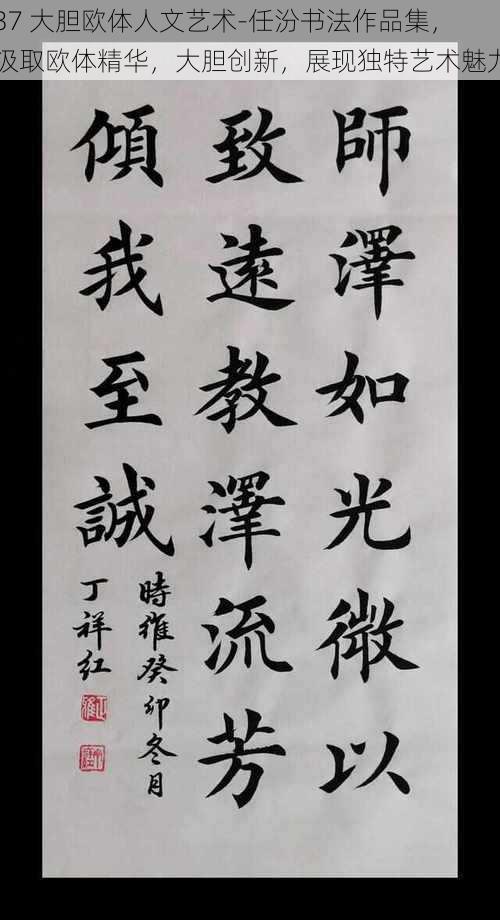 37 大胆欧体人文艺术-任汾书法作品集，
汲取欧体精华，大胆创新，展现独特艺术魅力
師澤如光微以
致遠教澤流芳
傾我至誠
時維癸卯冬月
丁祥红